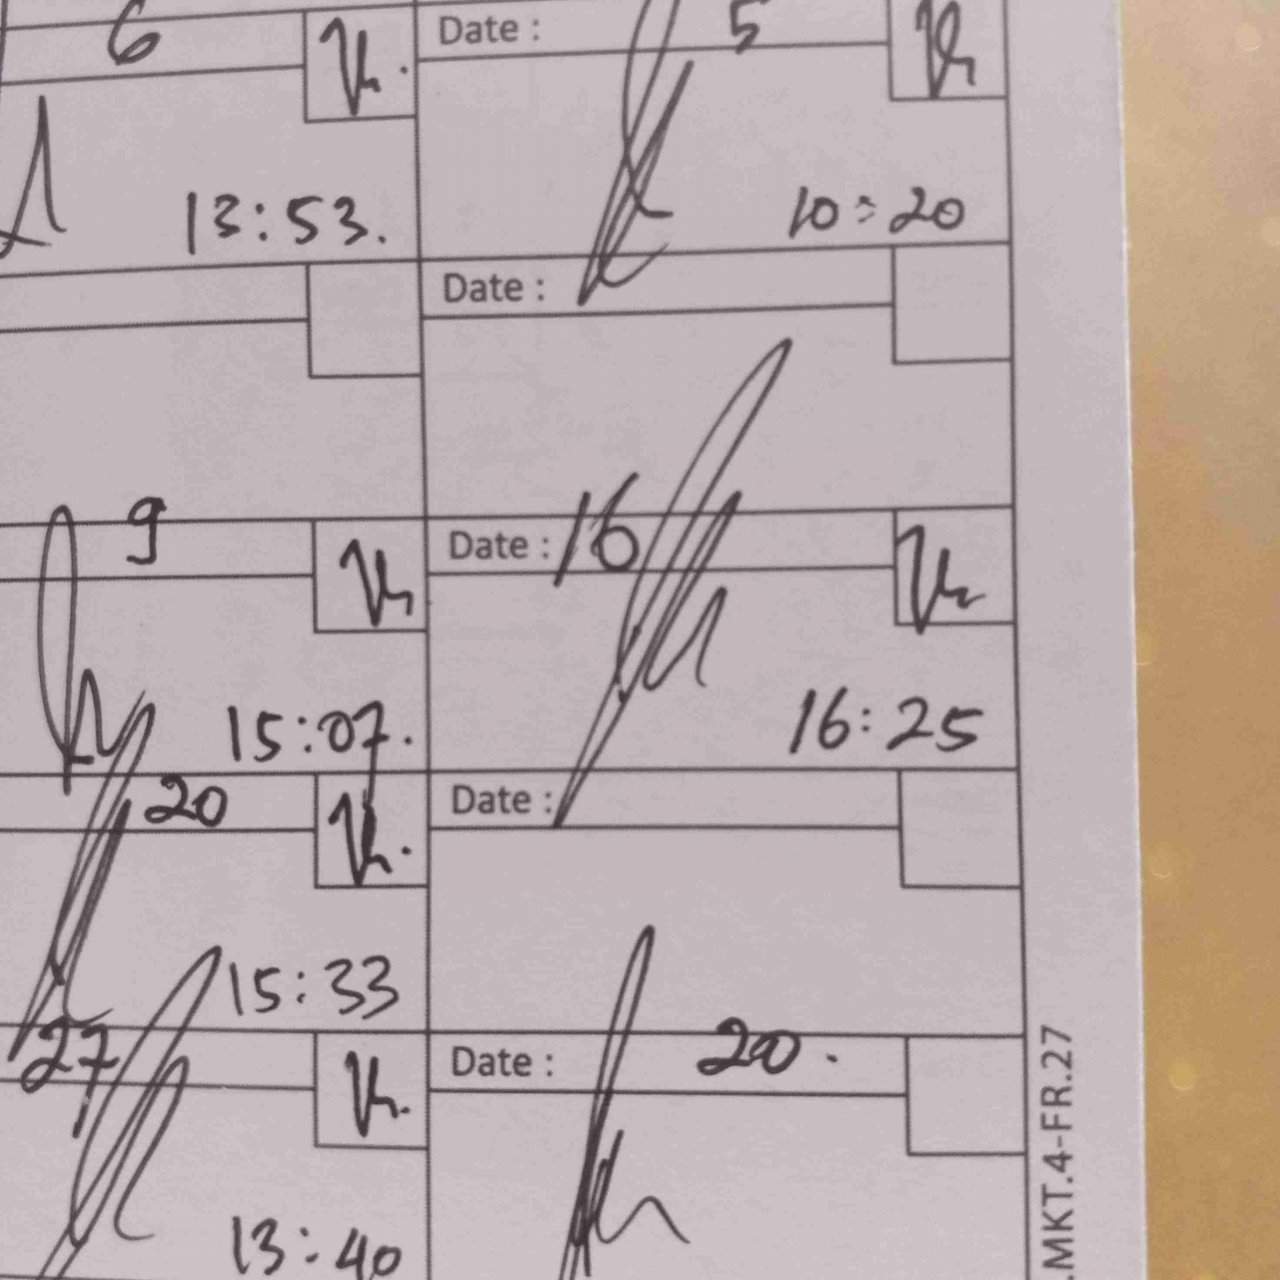 6
Date : 5
13:53.
10:20
Date :
9
Date : 16
15:07.
16:25
20
Date :
15:33
27
Date : 20.
13:40
.MKT.4-FR.27